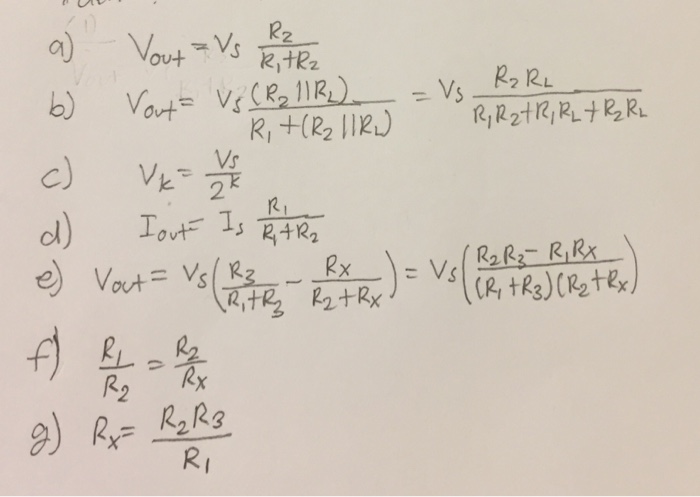 a) Vout = Vs R2/(R1+R2)
b) Vout = Vs (R2 || RL)/(R1 + (R2 || RL)) = Vs R2 RL/(R1R2+R1RL+R2RL)
c) Vk = Vs/2^k
d) Iout = Is R1/(R1+R2)
e) Vout = Vs(R3/(R1+R3) - Rx/(R2+Rx)) = Vs((R2R3 - R1Rx)/((R1+R3)(R2+Rx)))
f) R1/R2 = R2/Rx
g) Rx = R2R3/R1